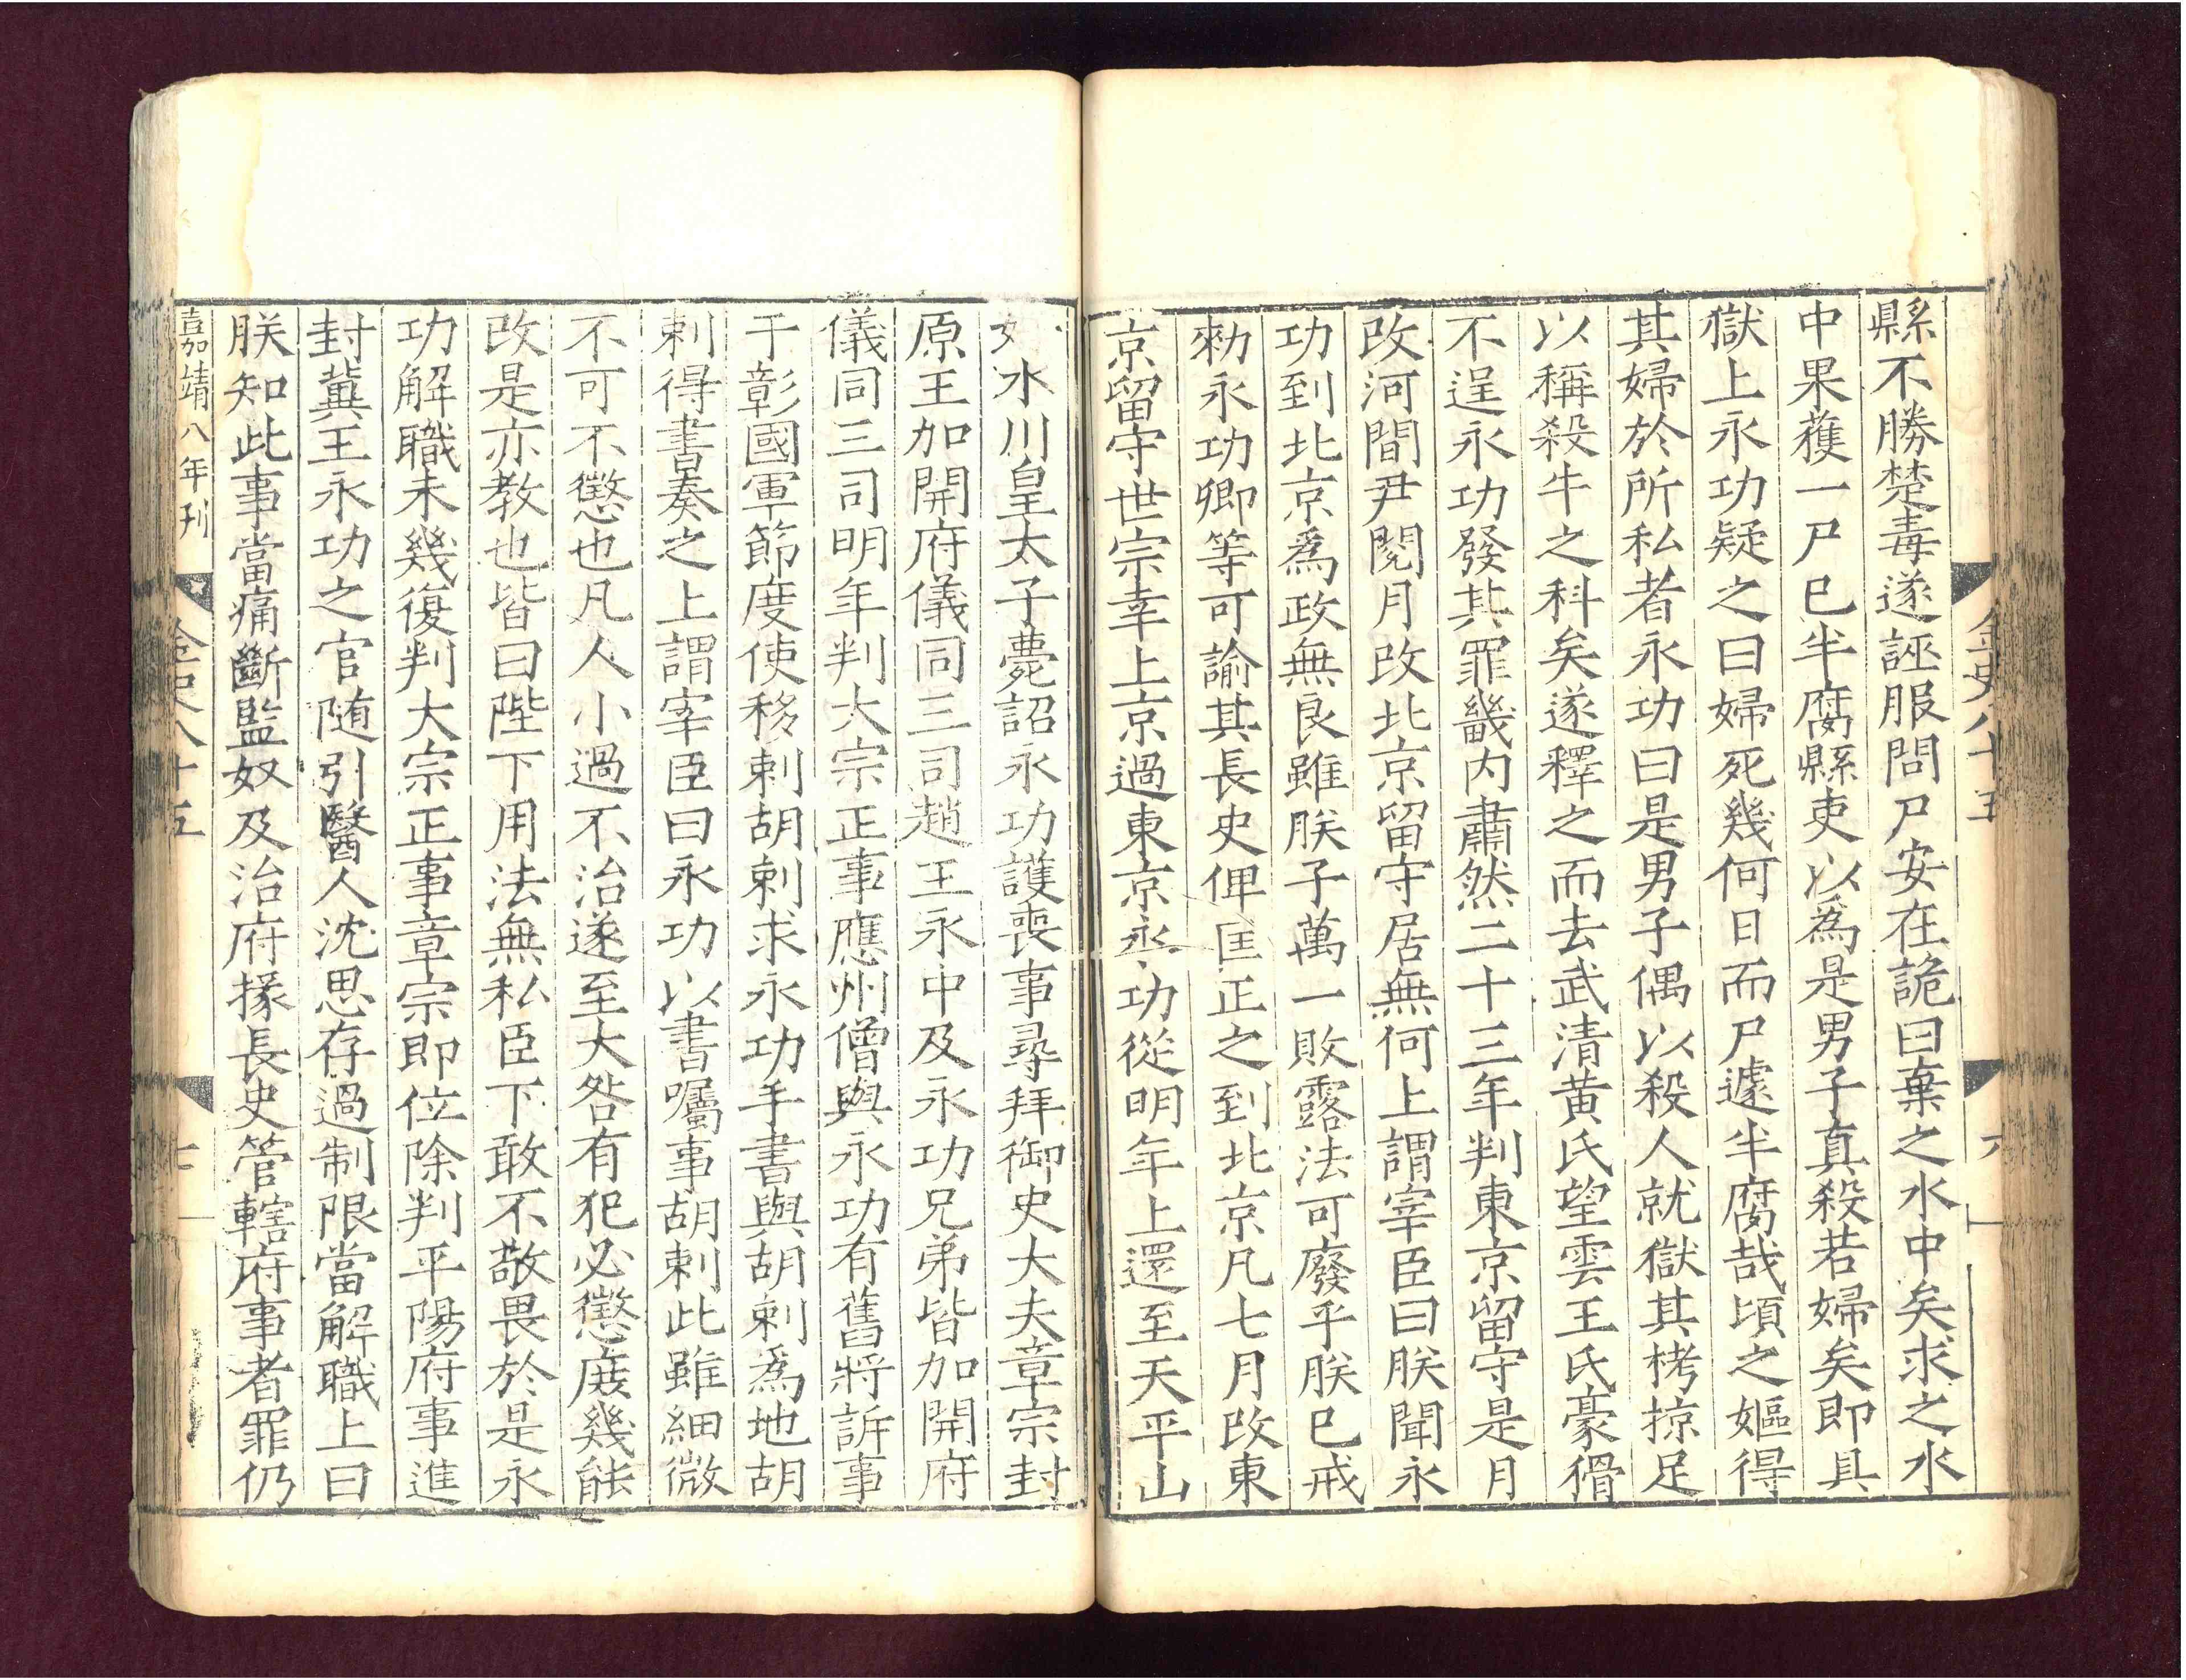 金史八十五
六
縣不勝楚毒遂誣服問尸安在詭曰棄之水中矣求之水
中果獲一尸已半腐縣吏以爲是男子真殺若婦矣即具
獄上永功疑之曰婦死幾何日而尸遽半腐哉頃之嫗得
其婦於所私者永功曰是男子偶以殺人就獄其栲掠足
以稱殺牛之科矣遂釋之而去武清黃氏望雲王氏豪猾
不逞永功發其罪畿內肅然二十三年判東京留守是月
改河間尹閱月改北京留守居無何上謂宰臣曰朕聞永
功到北京爲政無良雖朕子萬一敗露法可廢乎朕已戒
勑永功卿等可諭其長史俾匡正之到北京凡七月改東
京留守世宗幸上京過東京永功從明年上還至天平山
好水川皇太子薨詔永功護喪事尋拜御史大夫章宗封
原王加開府儀同三司趙王永中及永功兄弟皆加開府
儀同三司明年判大宗正事應州僧與永功有舊將訴事
于彰國軍節度使移剌胡剌求永功手書與胡剌爲地胡
剌得書奏之上謂宰臣曰永功以書囑事胡剌此雖細微
不可不懲也凡人小過不治遂至大咎有犯必懲庶幾能
改是亦教也皆曰陛下用法無私臣下敢不敬畏於是永
功解職未幾復判大宗正事章宗即位除判平陽府事進
封冀王永功之官隨引醫人沈思存過制限當解職上曰
朕知此事當痛斷監奴及治府掾長史管轄府事者罪仍
嘉靖八年刊
金史八十五
七